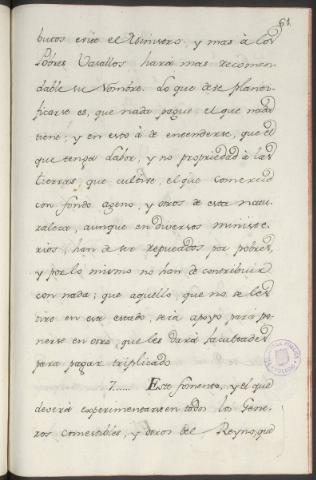 61.
butos entre el Universo; y mas à los
Pobres Vasallos hará mas recomen
dable su Nombre. Lo que debe planti-
ficarse es, que nada pague el que nada
tiene; y en esto á de entenderse, que el
que tenga labor, y no propriedad à las
tierras, que cultive, el que comercie
con fondo ageno, y otros de esta natu-
raleza, aunque en diversos ministe-
rios, han de ser reputados por pobres,
y por lo mismo no han de contribuir
con nada; que aquello, que no se les
tire en este estado, sería apoyo para po-
nerse en otro, que les dará facultades
para pagar triplicado.
7..... Este fomento, y el que
deverá experimentarse en todos los Gene-
ros comestibles, y otros del Reyno, que